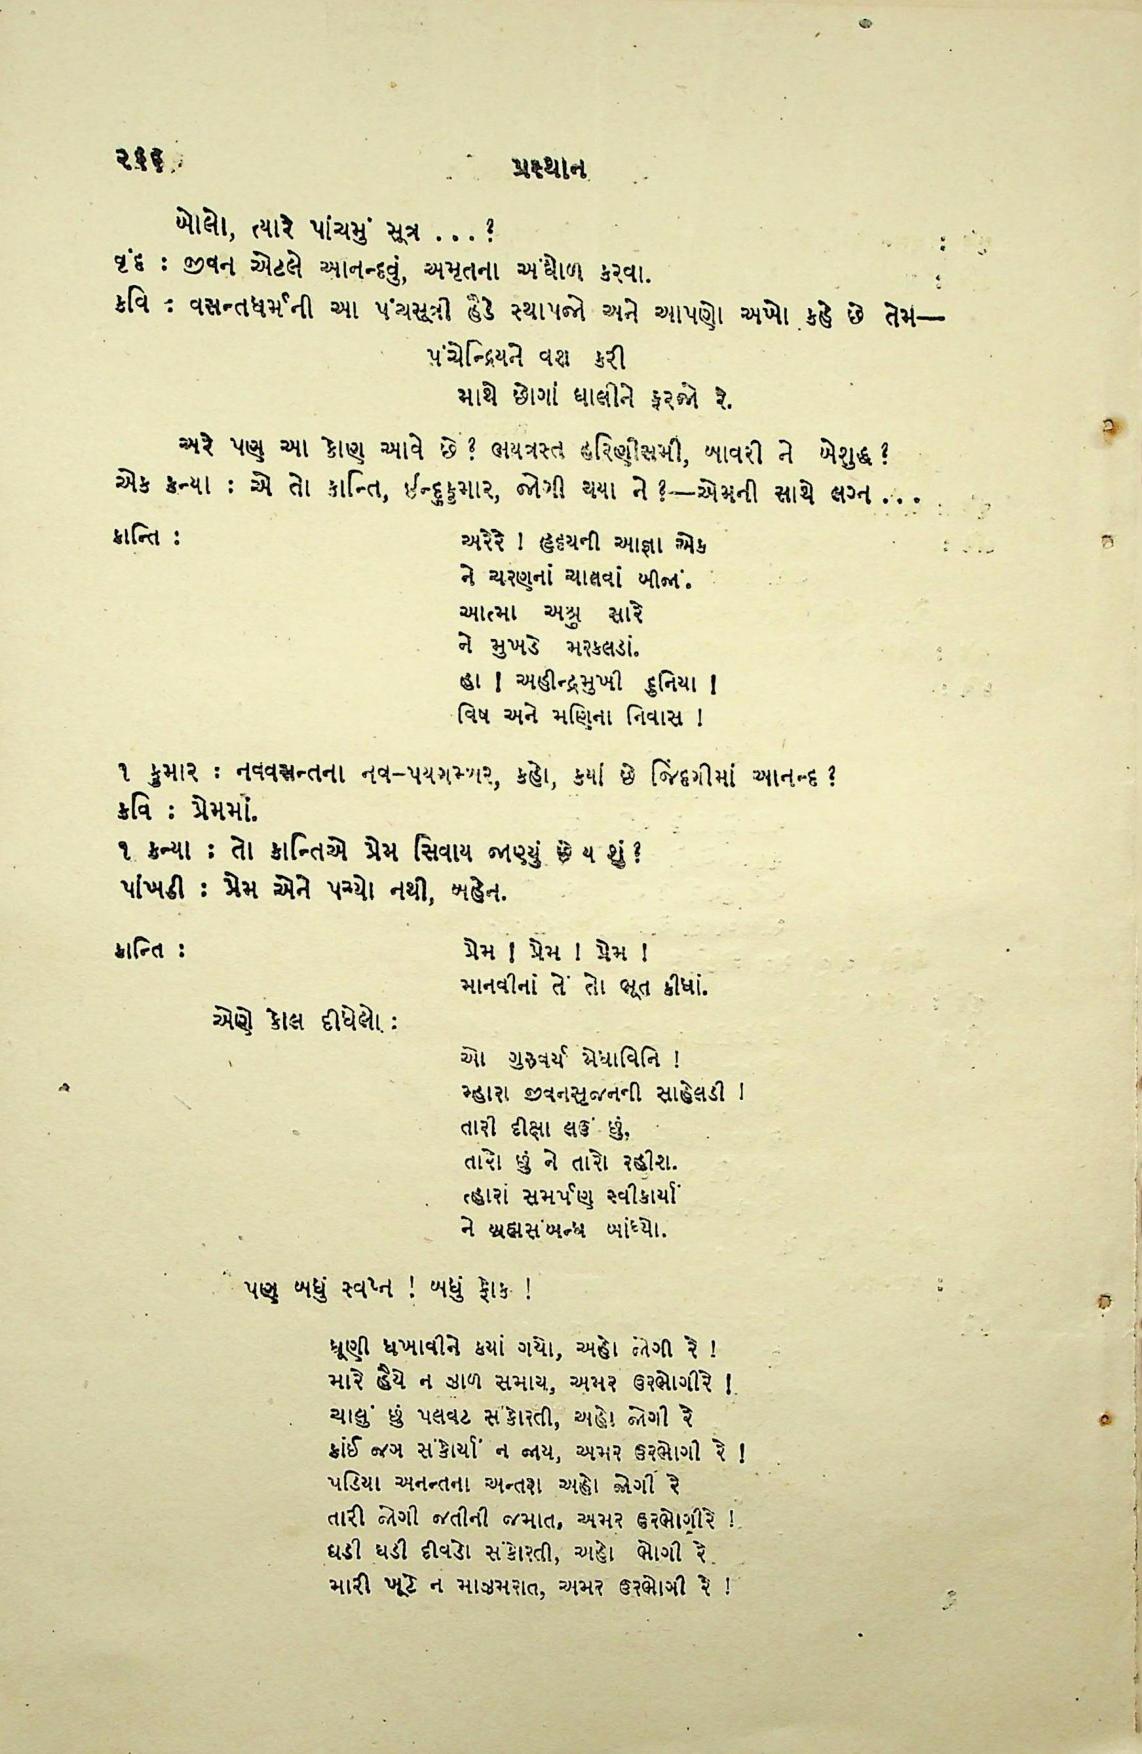 ૨૬૬
પ્રસ્થાન
બોલો, ત્યારે પાંચમું સૂત્ર ...?
વૃંદ : જીવન એટલે આનન્દવું, અમૃતના અંઘોળ કરવા.
કવિ : વસન્તધર્મની આ પંચસૂત્રી હૈડે સ્થાપજો અને આપણો અખો કહે છે તેમ—
પંચેન્દ્રિયને વશ કરી
માથે છોગાં ઘાલીને ફરજો રે.
અરે પણ આ કોણ આવે છે? ભયત્રસ્ત હરિણીસમી, બાવરી ને બેશુદ્ધ?
એક કન્યા : એ તો કાન્તિ, ઈન્દુકુમાર, જોગી થયા ને?—એમની સાથે લગ્ન ...
કાન્તિ :
અરેરે ! હૃદયની આજ્ઞા એક
ને ચરણનાં ચાલવાં બીજાં.
આત્મા અશ્રુ સારે
ને મુખડે મરકલડાં.
હા ! અહીન્દ્રમુખી દુનિયા !
વિષ અને મણિના નિવાસ !
૧ કુમાર : નવવસન્તના નવ-પયગમ્બર, કહો, કયાં છે જિંદગીમાં આનન્દ ?
કવિ : પ્રેમમાં.
૧ કન્યા : તો કાન્તિએ પ્રેમ સિવાય જાણ્યું છે ય શું?
પાંખડી : પ્રેમ એને પચ્યો નથી, બહેન.
કાન્તિ :
પ્રેમ ! પ્રેમ ! પ્રેમ !
માનવીનાં તેં તો ભૂત કીધાં.
એણે કોલ દીધેલો :
ઓ ગુરુવર્ય મેધાવિનિ !
મ્હારા જીવનસૃજનની સાહેલડી !
તારી દીક્ષા લઉં છું,
તારો છું ને તારો રહીશ.
ત્હારાં સમર્પણ સ્વીકાર્યાં
ને બ્રહ્મસંબન્ધ બાંધ્યો.
પણ બધું સ્વપ્ન ! બધું ફોક !
ધૂણી ધખાવીને કયાં ગયો, અહો જોગી રે !
મારે હૈયે ન ઝાળ સમાય, અમર ઉરભોગીરે !
ચાલું છું પલવટ સંકોરતી, અહો જોગી રે
કાંઈ જગ સંકોર્યાં ન જાય, અમર ઉરભોગી રે !
પડિયા અનન્તના અન્તરા અહો જોગી રે
તારી જોગી જતીની જમાત, અમર ઉરભોગીરે !
ઘડી ઘડી દીવડો સંકોરતી, અહો ભોગી રે
મારી ખૂટે ન માઝમરાત, અમર ઉરભોગી રે !